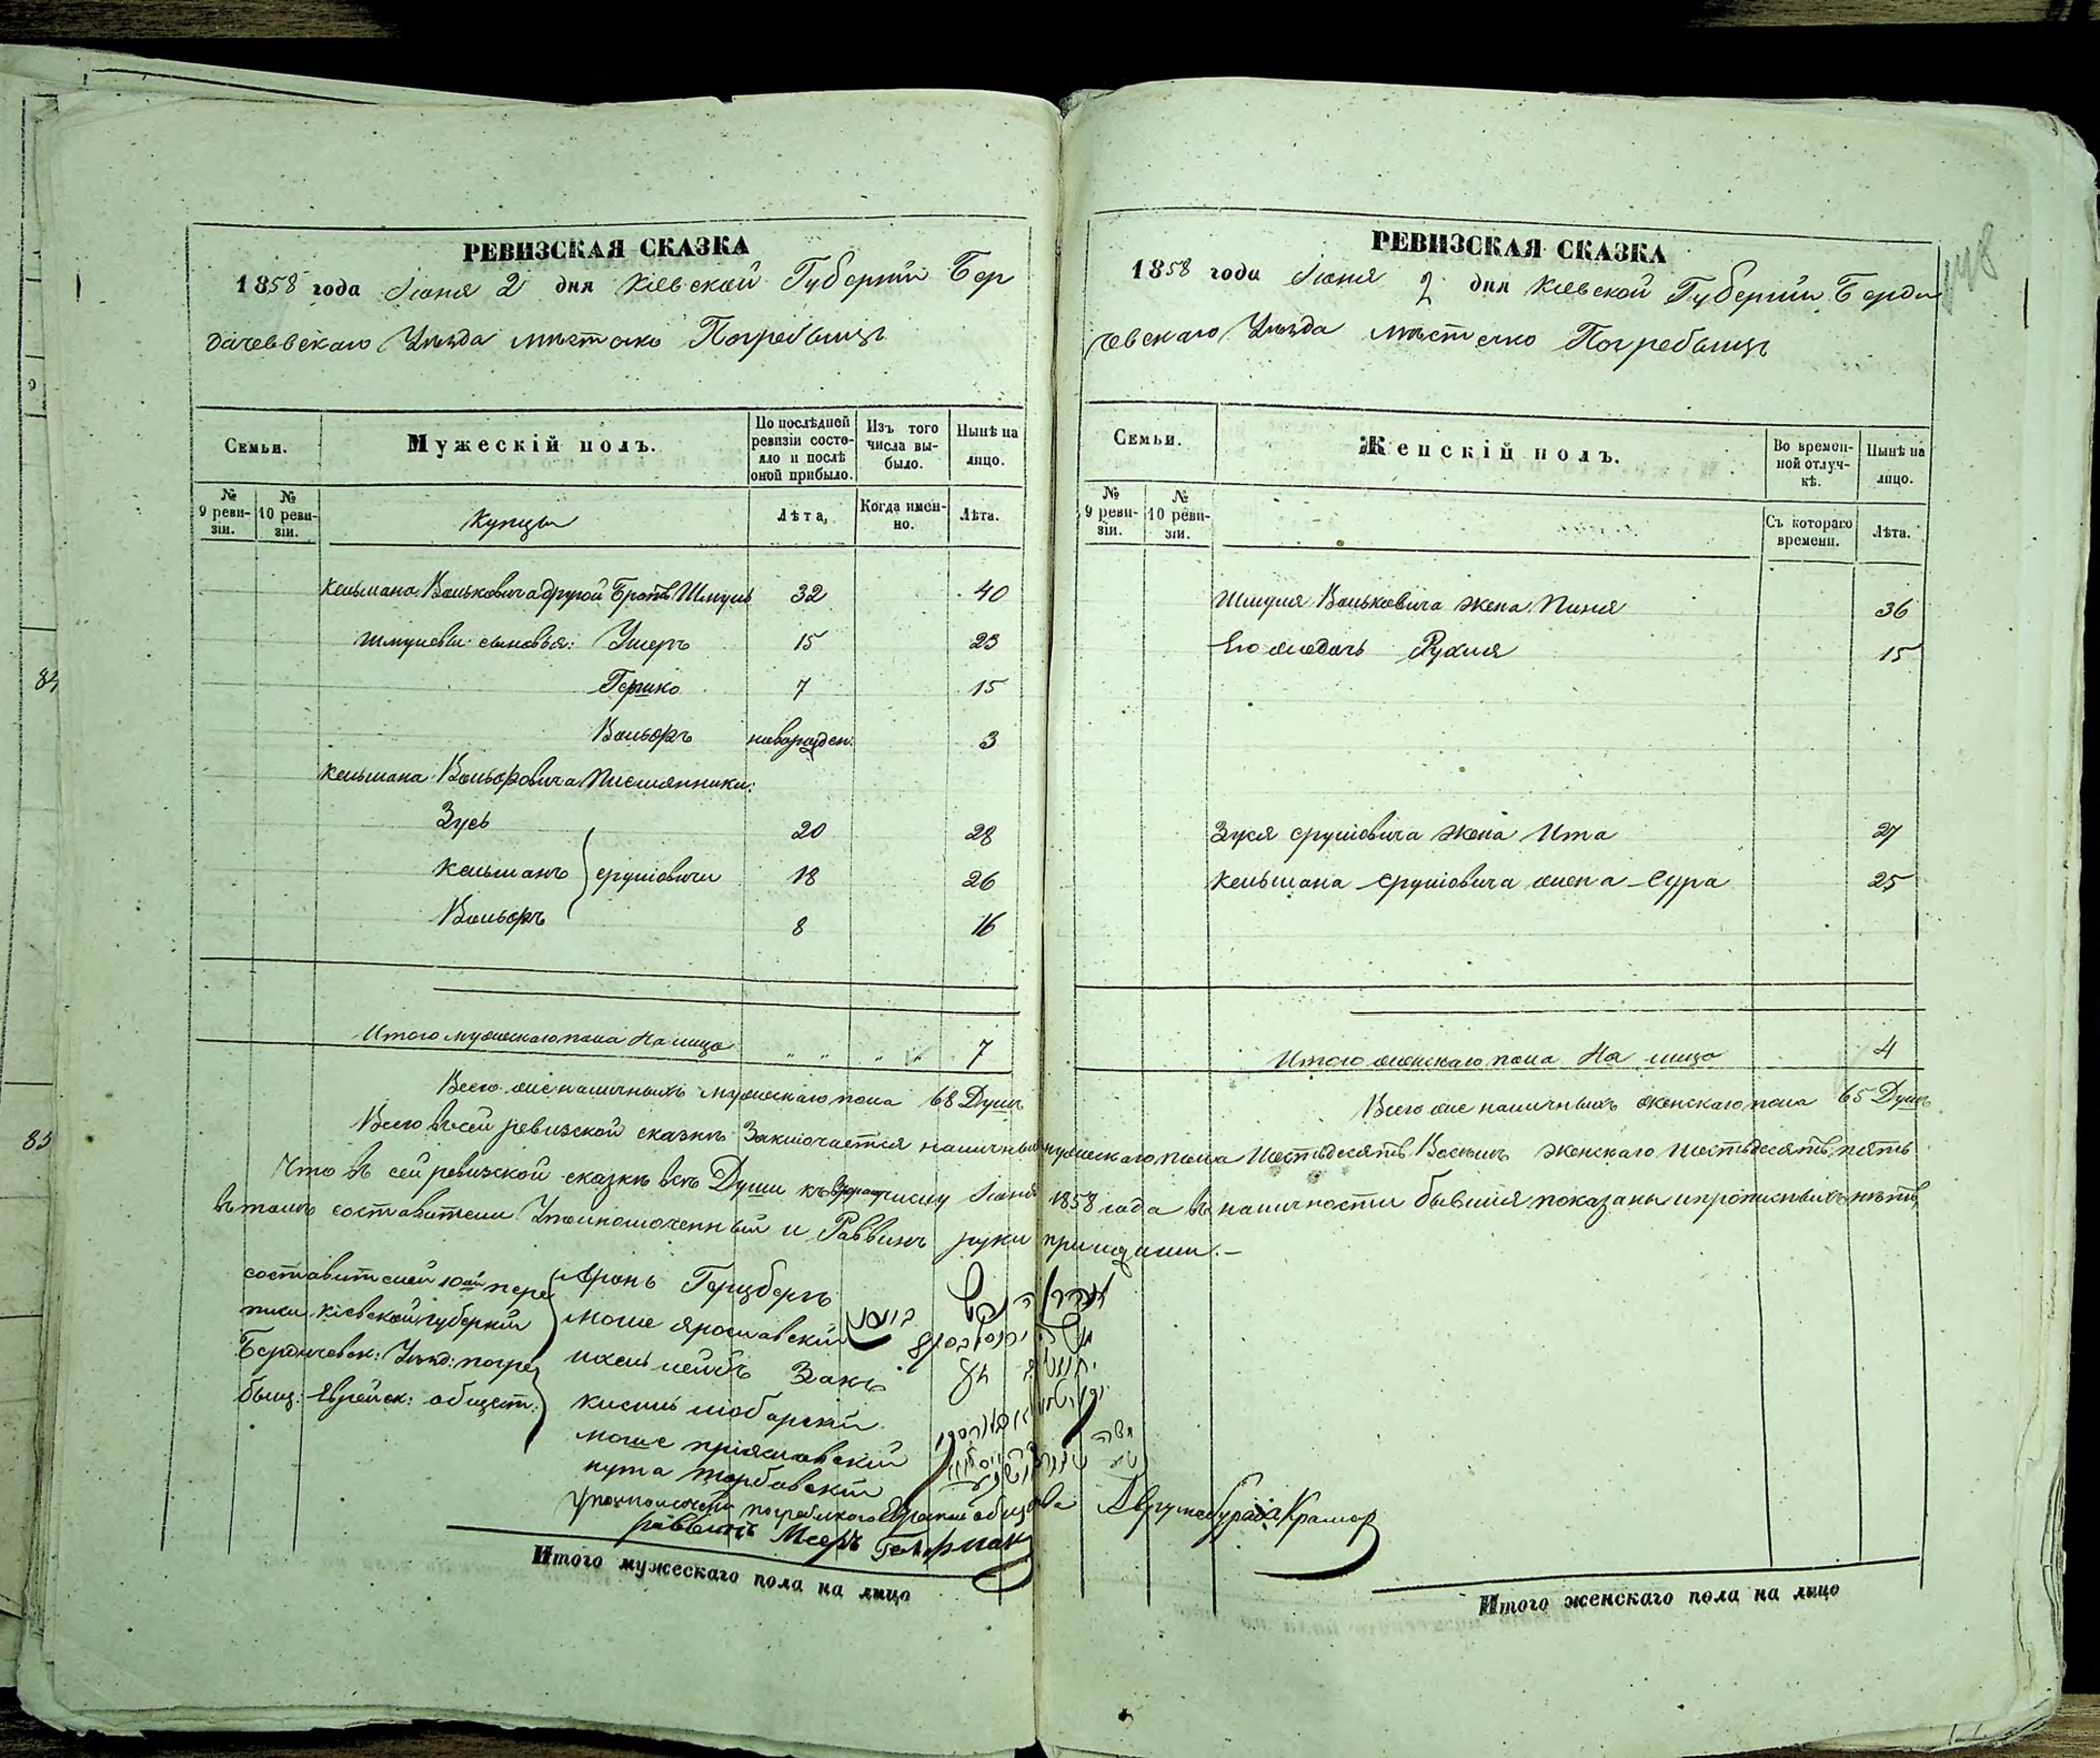 РЕВИЗСКАЯ СКАЗКА
1858 года Іюня 2 дня Кіевской Губерніи Бер
дичевскаго Уѣзда мѣстечко Погребищъ
Семьи.
Мужескій полъ.
По послѣдней ревизіи состояло и послѣ оной прибыло.
Изъ того числа выбыло.
Нынѣ на лицо.
№ 9 ревизіи.
№ 10 ревизіи.
Купцы
Лѣта,
Когда именно.
Лѣта.
Кельмана Вольковича другой Братъ Шмуль 32 40
Шмулевы сыновья: Ушеръ 15 23
Гершко 7 15
Вольфъ новорожден: 3
Кельмана Вольфовича Племянники:
Зусь 20 28
Кельманъ Сруліовичи 18 26
Вольфъ 8 16
Итого мужескаго пола На лицо „ „ „ „ 7
Всего же наличныхъ мужескаго пола 68 Душъ
РЕВИЗСКАЯ СКАЗКА
148
1858 года Іюня 2 дня Кіевской Губерніи Берди
чевскаго Уѣзда мѣстечко Погребищъ
Семьи.
Женскій полъ.
Во временной отлучкѣ.
Нынѣ на лицо.
№ 9 ревизіи.
№ 10 ревизіи.
Съ котораго времени.
Лѣта.
Шмуля Вольковича жена Пиня 36
Его дочь Рухля 15
Зуся Сруліовича жена Ита 27
Кельмана Сруліовича жена Сура 25
Итого женскаго пола На лицо 4
Всего же наличныхъ женскаго пола 65 Душъ
Всего въ сей ревизской сказкѣ Заключается наличныхъ мужескаго пола Шестьдесятъ Восьмъ женскаго шестьдесятъ пять
Что въ сей ревизской сказкѣ всѣ Души къ второму числу Іюня 1858 года въ наличности бывшія показаны и прописныхъ нѣтъ,
въ томъ составители Уполномоченный и Раввинъ руки приложили.—
составителей 10ой пере
писи Кіевской губерніи
Бердичевск: Уѣзд: погре
бищ: Еврейск: общест:
Аронь Герцбергъ
Моше Ярославскій
Ихель лейбъ Закъ
Кисиль
Моше
нута
Уполномоченны погребиского Еврейского общества
раввинъ Мееръ
84
85
Итого мужескаго пола на лицо
Итого женскаго пола на лицо